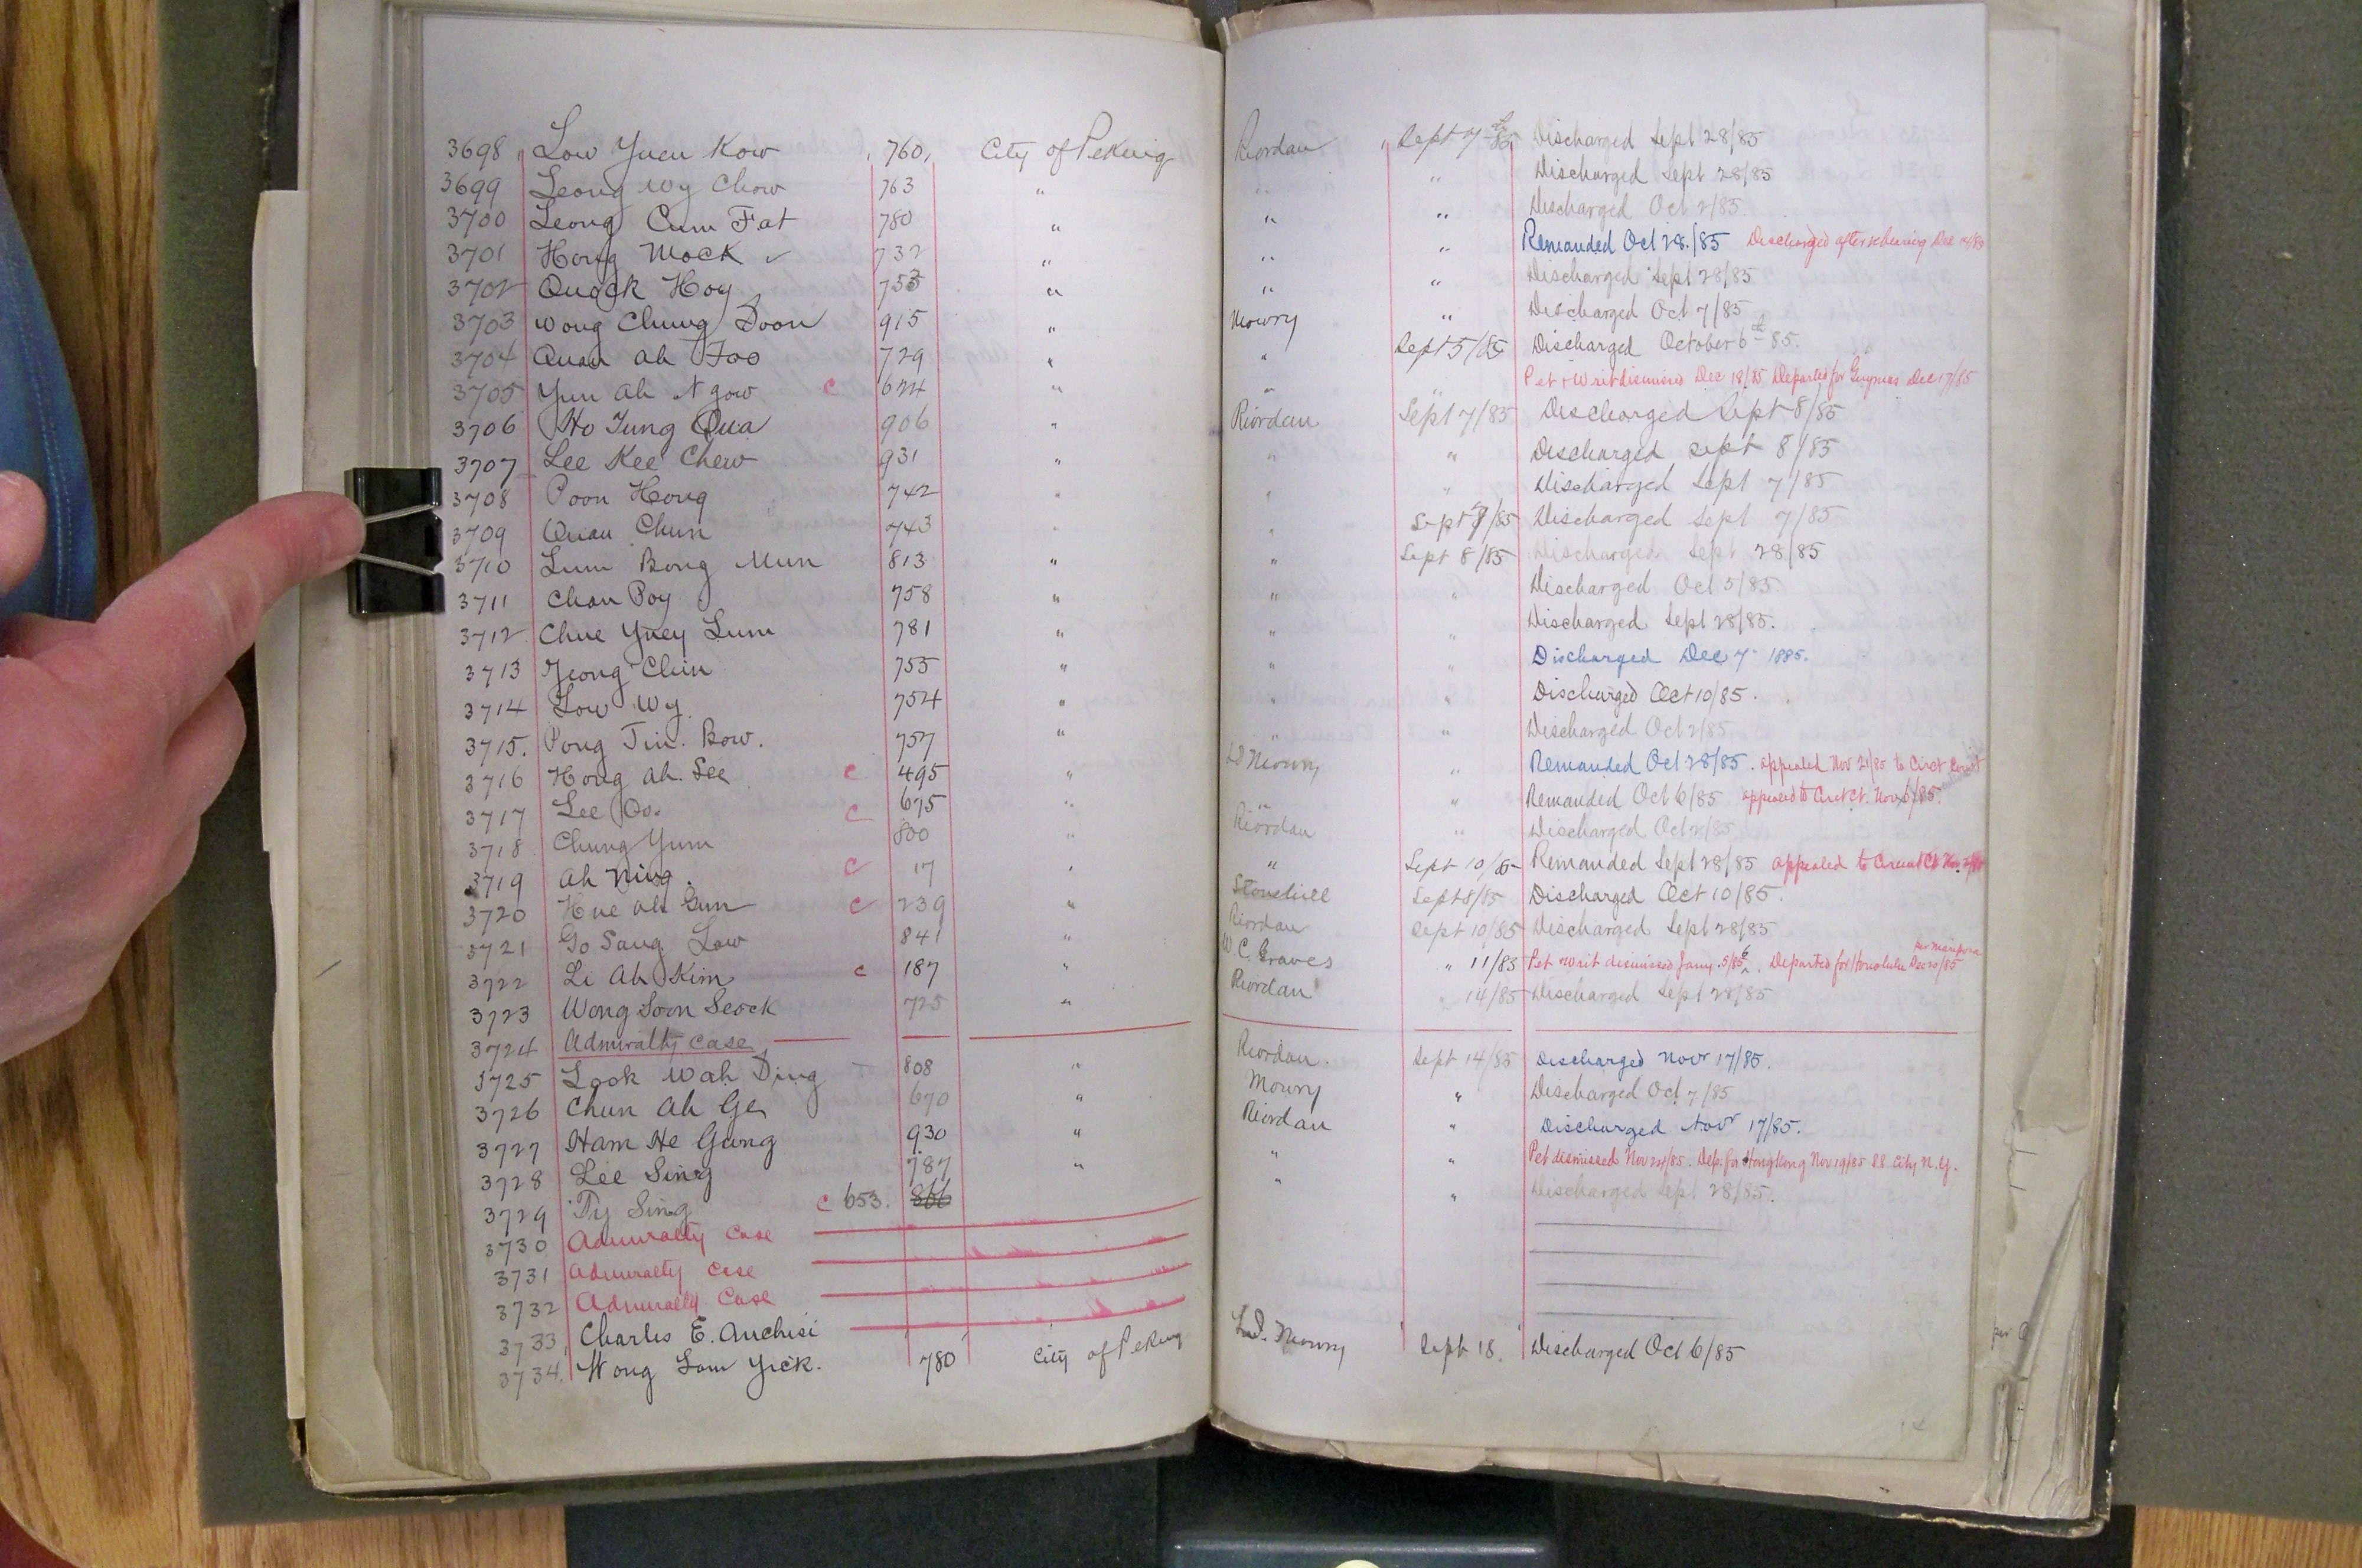 3698 Low Yuen Kow 760 City of Peking Riordan Sept 7th 85 Discharged Sept 28/85
3699 Leong Wy Chow 763 " " " Discharged Sept 28/85
3700 Leong Cum Fat 780 " " " Discharged Oct 2/85
3701 Hong Mock ✓ 732 " " " Remanded Oct 28./85 Discharged after rehearing Dec 14/85
3702 Quock Hoy 753 " " " Discharged Sept 28/85
3703 Wong Chung Doon 915 " Mowry " Discharged Oct 7/85
3704 Quan Ah Foo 729 " " Sept 5/85 Discharged October 6th 85.
3705 Yun Ah Ngow C 624 " " " Pet & Writ dismissed Dec 18/85 Departed for Guymas Dec 17/85
3706 Ho Tung Qua 906 " Riordan Sept 7/85 Discharged Sept 8/85
3707 Lee Kee Chew 931 " " " Discharged Sept 8/85
3708 Poon Hong 742 " " " Discharged Sept 7/85
3709 Quan Chun 743 " " Sept 7/85 Discharged Sept 7/85
3710 Lum Bong Mun 813 " " Sept 8/85 Discharged Sept 28/85
3711 Chan Poy 758 " " " Discharged Oct 5/85.
3712 Chue Yuey Lum 781 " " " Discharged Sept 28/85.
3713 Yeong Chin 755 " " " Discharged Dec 7 1885.
3714 Low Wy 754 " " " Discharged Oct 10/85.
3715. Pong Tin. Bow. 757 " " " Discharged Oct 2/85
3716 Hong Ah. See C 495 " Mowry " Remanded Oct 28/85. appealed Nov 21/85 to Circt Court
3717 Lee Oo. C 675 " " " Remanded Oct 6/85 appealed to Circt Ct. Nov 6/85.
3718 Chung Yum 800 " Riordan " Discharged Oct 2/85
3719 Ah Ning. C 17 " " Sept 10/85 Remanded Sept 28/85 appealed to Circuit Ct Nov
3720 Hue Ah Gun C 239 " Stonehill Sept 8/85 Discharged Oct 10/85.
3721 Go Sang Low 841 " Riordan Sept 10/85 Discharged Sept 28/85
3722 Li Ah Kim C 187 " W C. Graves " 11/85 Pet & writ dismissed Jany. 5/86. Departed for Honolulu Dec 20/85 per Mariposa
3723 Wong Soon Seock 725 " Riordan " 14/85 Discharged Sept 28/85
3724 Admiralty Case
3725 Look Wah Ding 808 " Riordan. Sept 14/85 Discharged Novr 17/85.
3726 Chun Ah Ge 670 " Mowry " Discharged Oct 7/85
3727 Ham He Gung 930 " Riordan " Discharged Novr 17/85.
3728 Lee Sing 787 " " " Pet dismissed Nov 24/85. Dep. for Hong Kong Nov 19/85 SS. City N.Y.
3729 Ty Sing C 653. 866 " " Discharged Sept 28/85.
3730 Admiralty Case
3731 Admiralty Case
3732 Admiralty Case
3733 Charles E. Anchisi
3734. Wong Lom Yick. 780 City of Peking L.D. Mowry Sept 18. Discharged Oct 6/85